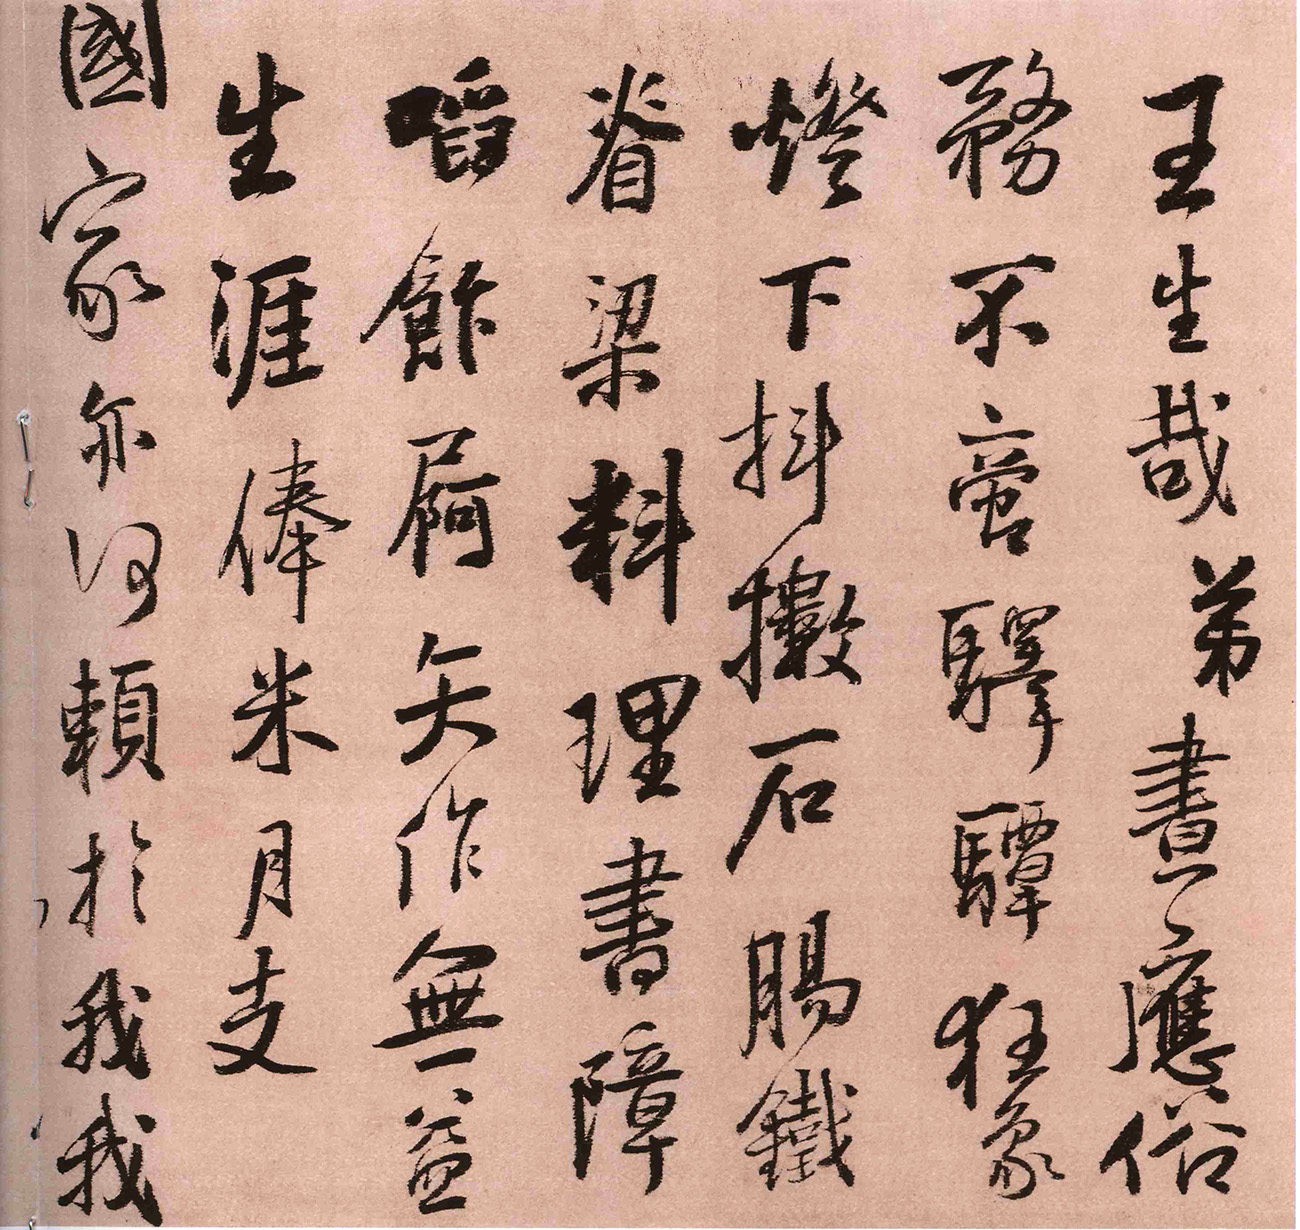 王生哉弟晝應俗
務不啻驛驒狂象
燈下抖擻石腸鐵
脊梁料理書障
啗飰屙矢作無益
生涯俸米月支
國家亦何賴於我我